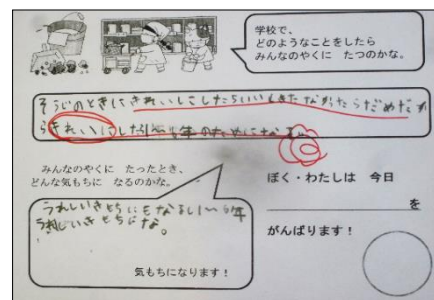 学校で、
どのようなことをしたら
みんなのやくに たつのかな。
そうじのときにきれいにしたらいいしきたなかったらだめだか
らきれいにしたら1〜6年のためになる。
みんなのやくに たったとき、
どんな気もちに なるのかな。
うれしいきもちにもなるし1〜6年
うれしいきもちにな。
気もちになります！
ぼく・わたしは 今日
を
がんばります！